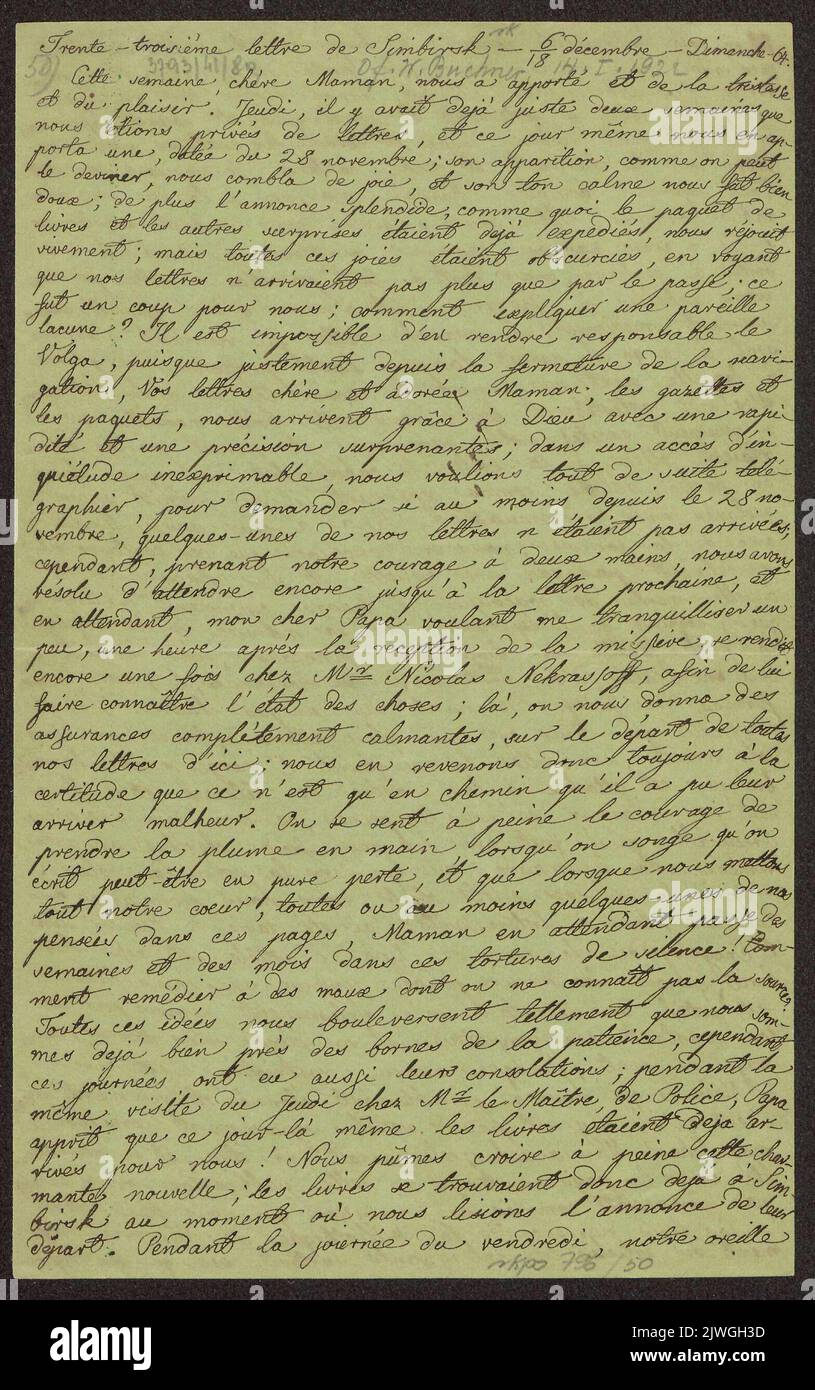 Trente-troisième lettre de Simbirsk — 6/18 décembre — Dimanche — 64.
50) 3793/41/8 Of. H. Buchner 14. I. 1922
Cette semaine, chère Maman, nous a apporté et de la tristesse
et du plaisir. Jeudi, il y avait dejà juste deux semaines que
nous étions privés de lettres, et ce jour même nous en ap-
porta une, datée du 28 novembre; son apparition, comme on peut
le deviner, nous combla de joie, et son ton calme nous fut bien
doux; de plus l'annonce splendide, comme quoi le paquet de
livres et les autres surprises étaient dejà expédiés, nous réjouit
vivement; mais toutes ces joies étaient obscurcies, en voyant
que nos lettres n'arrivaient pas plus que par le passé; ce
fut un coup pour nous; comment expliquer une pareille
lacune? Il est impossible d'en rendre responsable le
Volga, puisque justement depuis la fermeture de la navi-
gation, Vos lettres chère et adorée Maman, les gazettes et
les paquets, nous arrivent grâce à Dieu avec une rapi-
dité et une précision surprenantes; dans un accès d'in-
quiétude inexprimable, nous voulions tout de suite télé-
graphier, pour demander si au moins depuis le 28 no-
vembre, quelques-unes de nos lettres n'étaient pas arrivées;
cependant, prenant notre courage à deux mains, nous avons
résolu d'attendre encore jusqu'à la lettre prochaine, et
en attendant, mon cher Papa voulant me tranquilliser un
peu, une heure après la réception de la missive, se rendit
encore une fois chez Mr Nicolas Nekrassoff, afin de lui
faire connaître l'état des choses; là, on nous donna des
assurances complètement calmantes, sur le départ de toutes
nos lettres d'ici; nous en revenons donc toujours à la
certitude que ce n'est qu'en chemin qu'il a pu leur
arriver malheur. On se sent à peine le courage de
prendre la plume en main lorsqu'on songe qu'on
écrit peut-être en pure perte, et que lorsque nous mettons
tout notre coeur, toutes ou au moins quelques-unes de nos
pensées dans ces pages, Maman en attendant passe des
semaines et des mois dans ces tortures de silence! Com-
ment remédier à des maux dont on ne connaît pas la source?
Toutes ces idées nous bouleversent tellement que nous som-
mes dejà bien près des bornes de la patience, cependant
ces journées ont eu aussi leurs consolations; pendant la
même visite du Jeudi chez Mr le Maître de Police, Papa
apprit que ce jour-là même les livres étaient dejà ar-
rivés pour nous! Nous pûmes croire à peine cette char-
mante nouvelle; les livres se trouvaient donc dejà à Sim-
birsk au moment où nous lisions l'annonce de leur
départ. Pendant la journée du vendredi, notre oreille
rkps 796/50
alamy
Image ID: 2JWGH3D
www.alamy.com